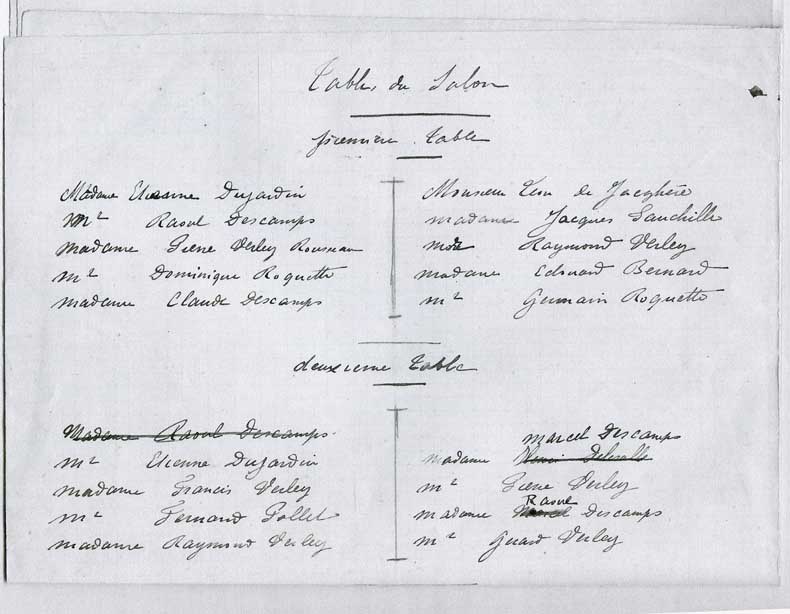 Tables du Salon
première table
Madame Etienne Dujardin
Mr Raoul Descamps
madame Pierre Verley Rousseau
mr Dominique Roquette
madame Claude Descamps
Monsieur Léon de Jaeghère
madame Jacques Lauchille
mr Raymond Verley
madame Edouard Bernard
mr Germain Roquette
deuxieme table
Madame Raoul Descamps
mr Etienne Dujardin
madame Francis Verley
mr Fernand Pollet
madame Raymond Verley
marcel Descamps
madame Henri Delesalle
mr Pierre Verley
Raoul
madame Marcel Descamps
mr Gerard Verley